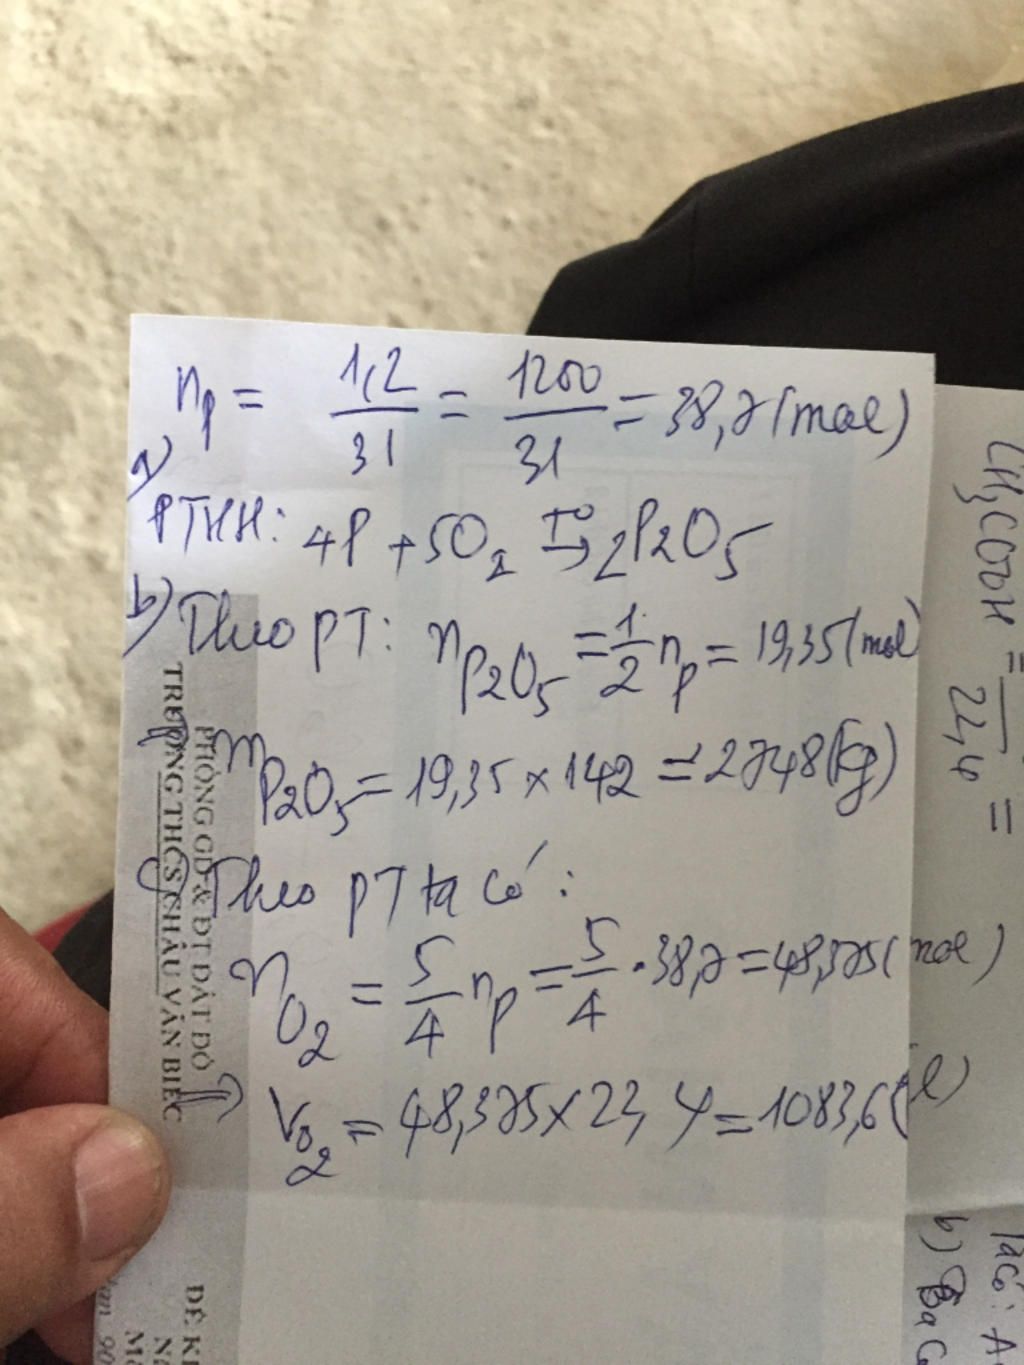 n_P = 1,2/31 = 1200/31 = 38,7 (mol)
a)
PTHH: 4P + 5O_2 t°→ 2P2O5
b) Theo PT: n_P2O5 = 1/2 n_P = 19,35 (mol)
=> m_P2O5 = 19,35 × 142 = 2748 (kg)
c) Theo PT ta có:
n_O2 = 5/4 n_P = 5/4 . 38,7 = 48,375 (mol)
=> V_O2 = 48,375 × 22,4 = 1083,6 (l)
PHÒNG GD & ĐT ĐẤT ĐỎ
TRƯỜNG THCS CHÂU VĂN BIẾC
ĐỀ K
CH3COOH = 
22,4 =
Ta có:
b) BaC